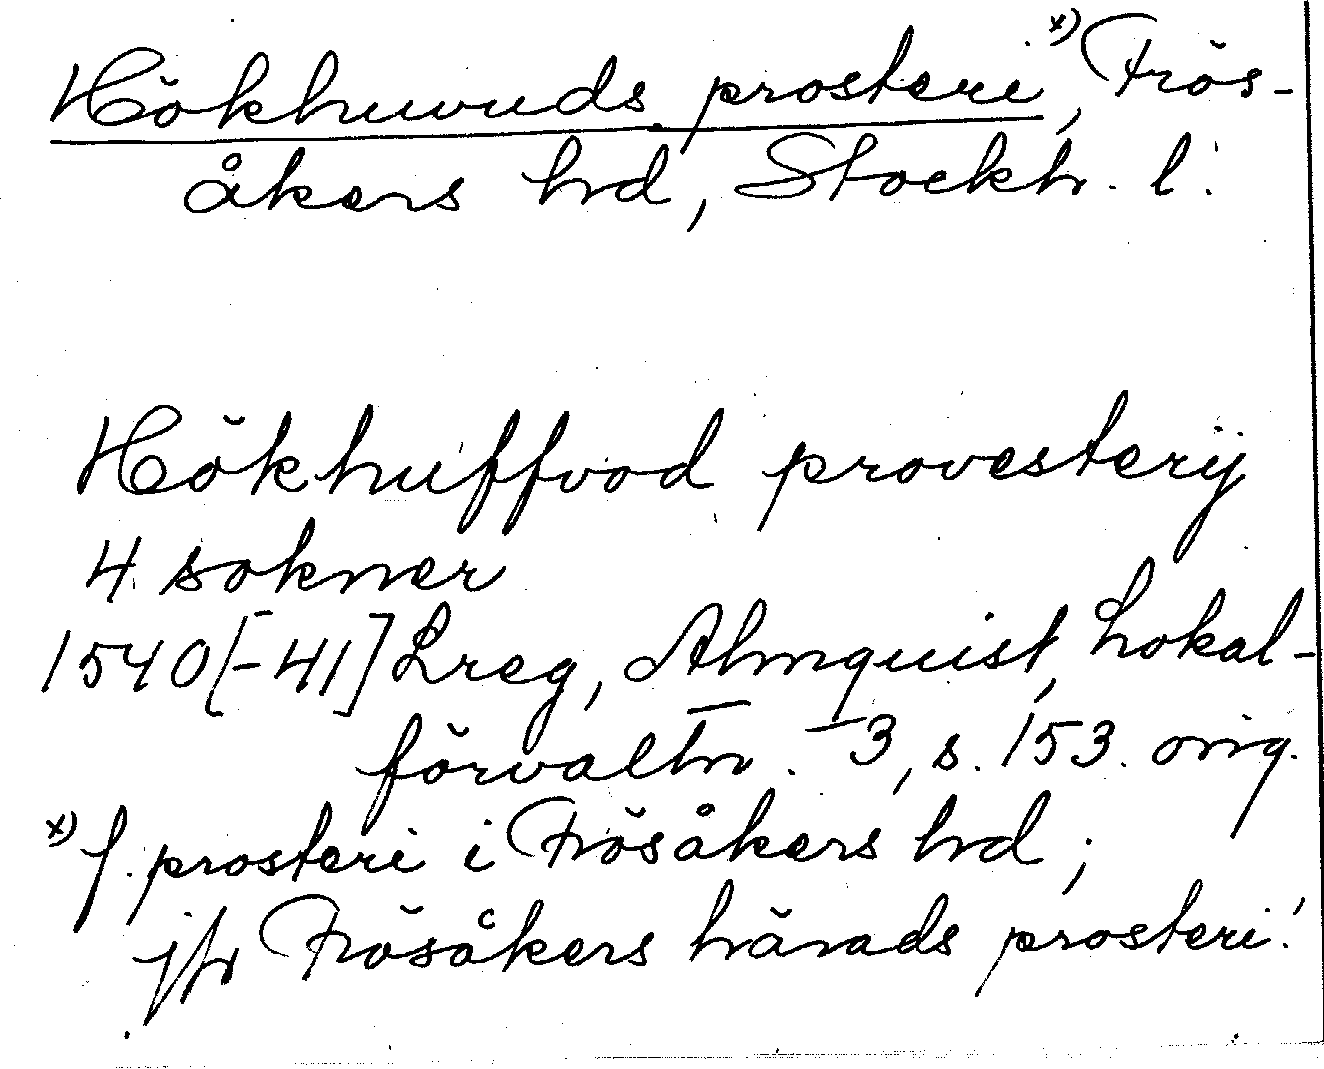 Hökhuvuds prosteri x), Frös-
åkers hd, Stockh. l.
Hökhuffvod provesterÿ
4 sokner
1540[-41] Lreg, Almquist, Lokal-
förvaltn. 3, s. 153. orig.
x) f. prosteri i Frösåkers hd;
jfr Frösåkers härads prosteri!